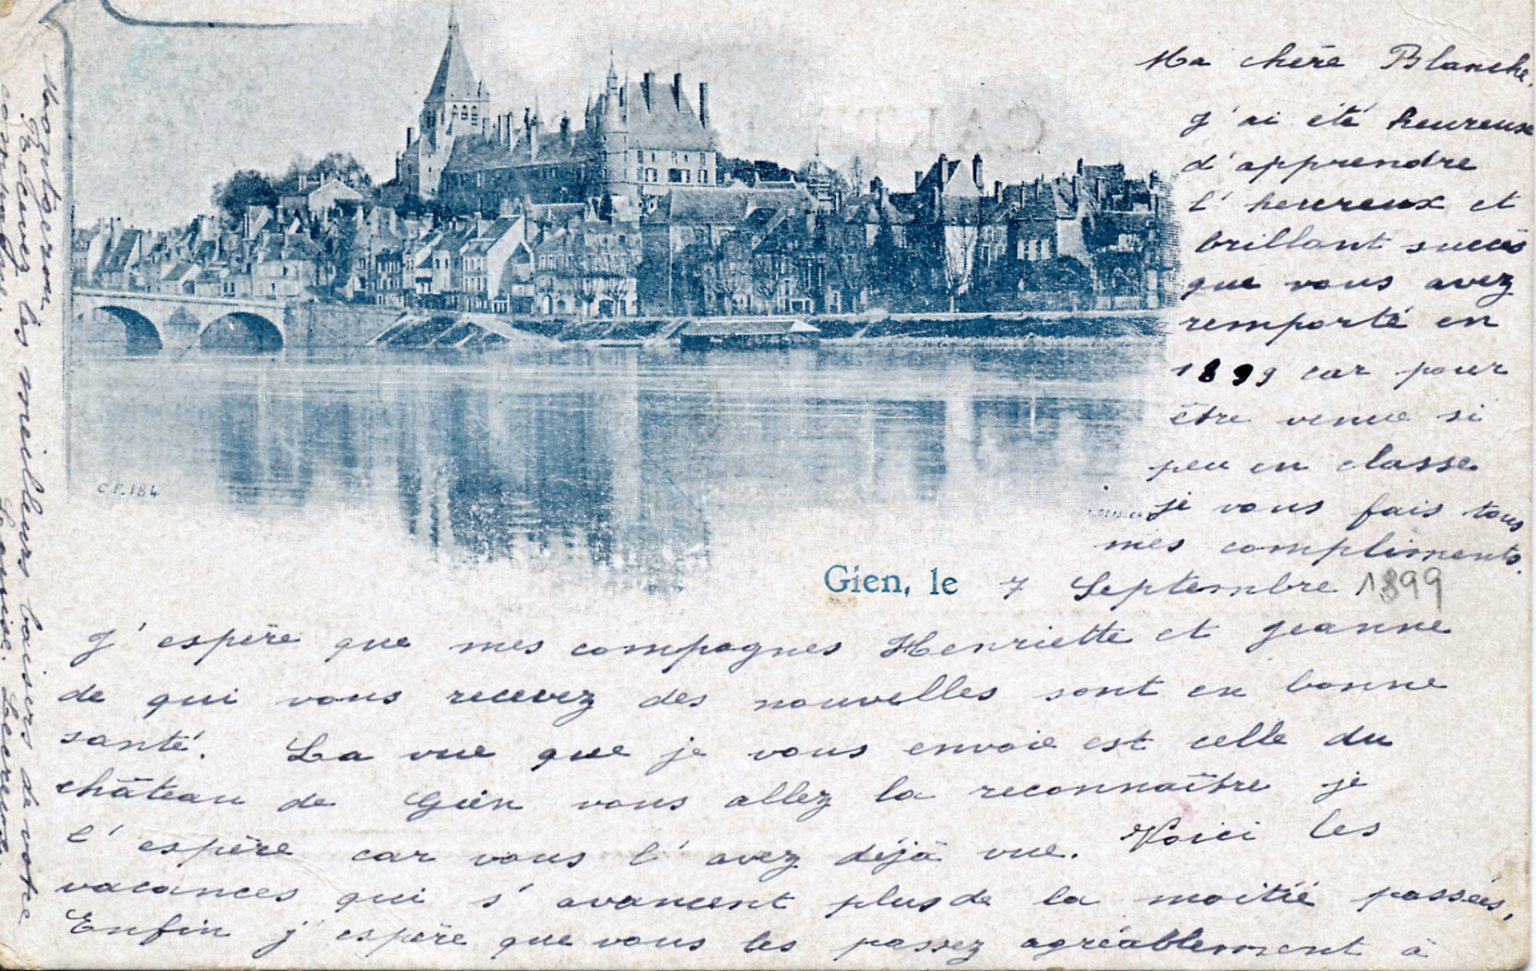 Ma chère Blanche,
J'ai été heureuse
d'apprendre
l'heureux et
brillant succès
que vous avez
remporté en
1899 car pour
être venue si
peu en classe
je vous fais tous
mes compliments.
C.P. 184
Gien, le 7 Septembre 1899
J'espère que mes compagnes Henriette et Jeanne
de qui vous recevez des nouvelles sont en bonne
santé. La vue que je vous envoie est celle du
château de Gien vous allez la reconnaître je
l'espère car vous l'avez déjà vue. Voici les
vacances qui s'avancent plus de la moitié passées,
Enfin j'espère que vous les passez agréablement à
Montgeron.
Recevez les meilleurs baisers de votre
Louise Lecreux.